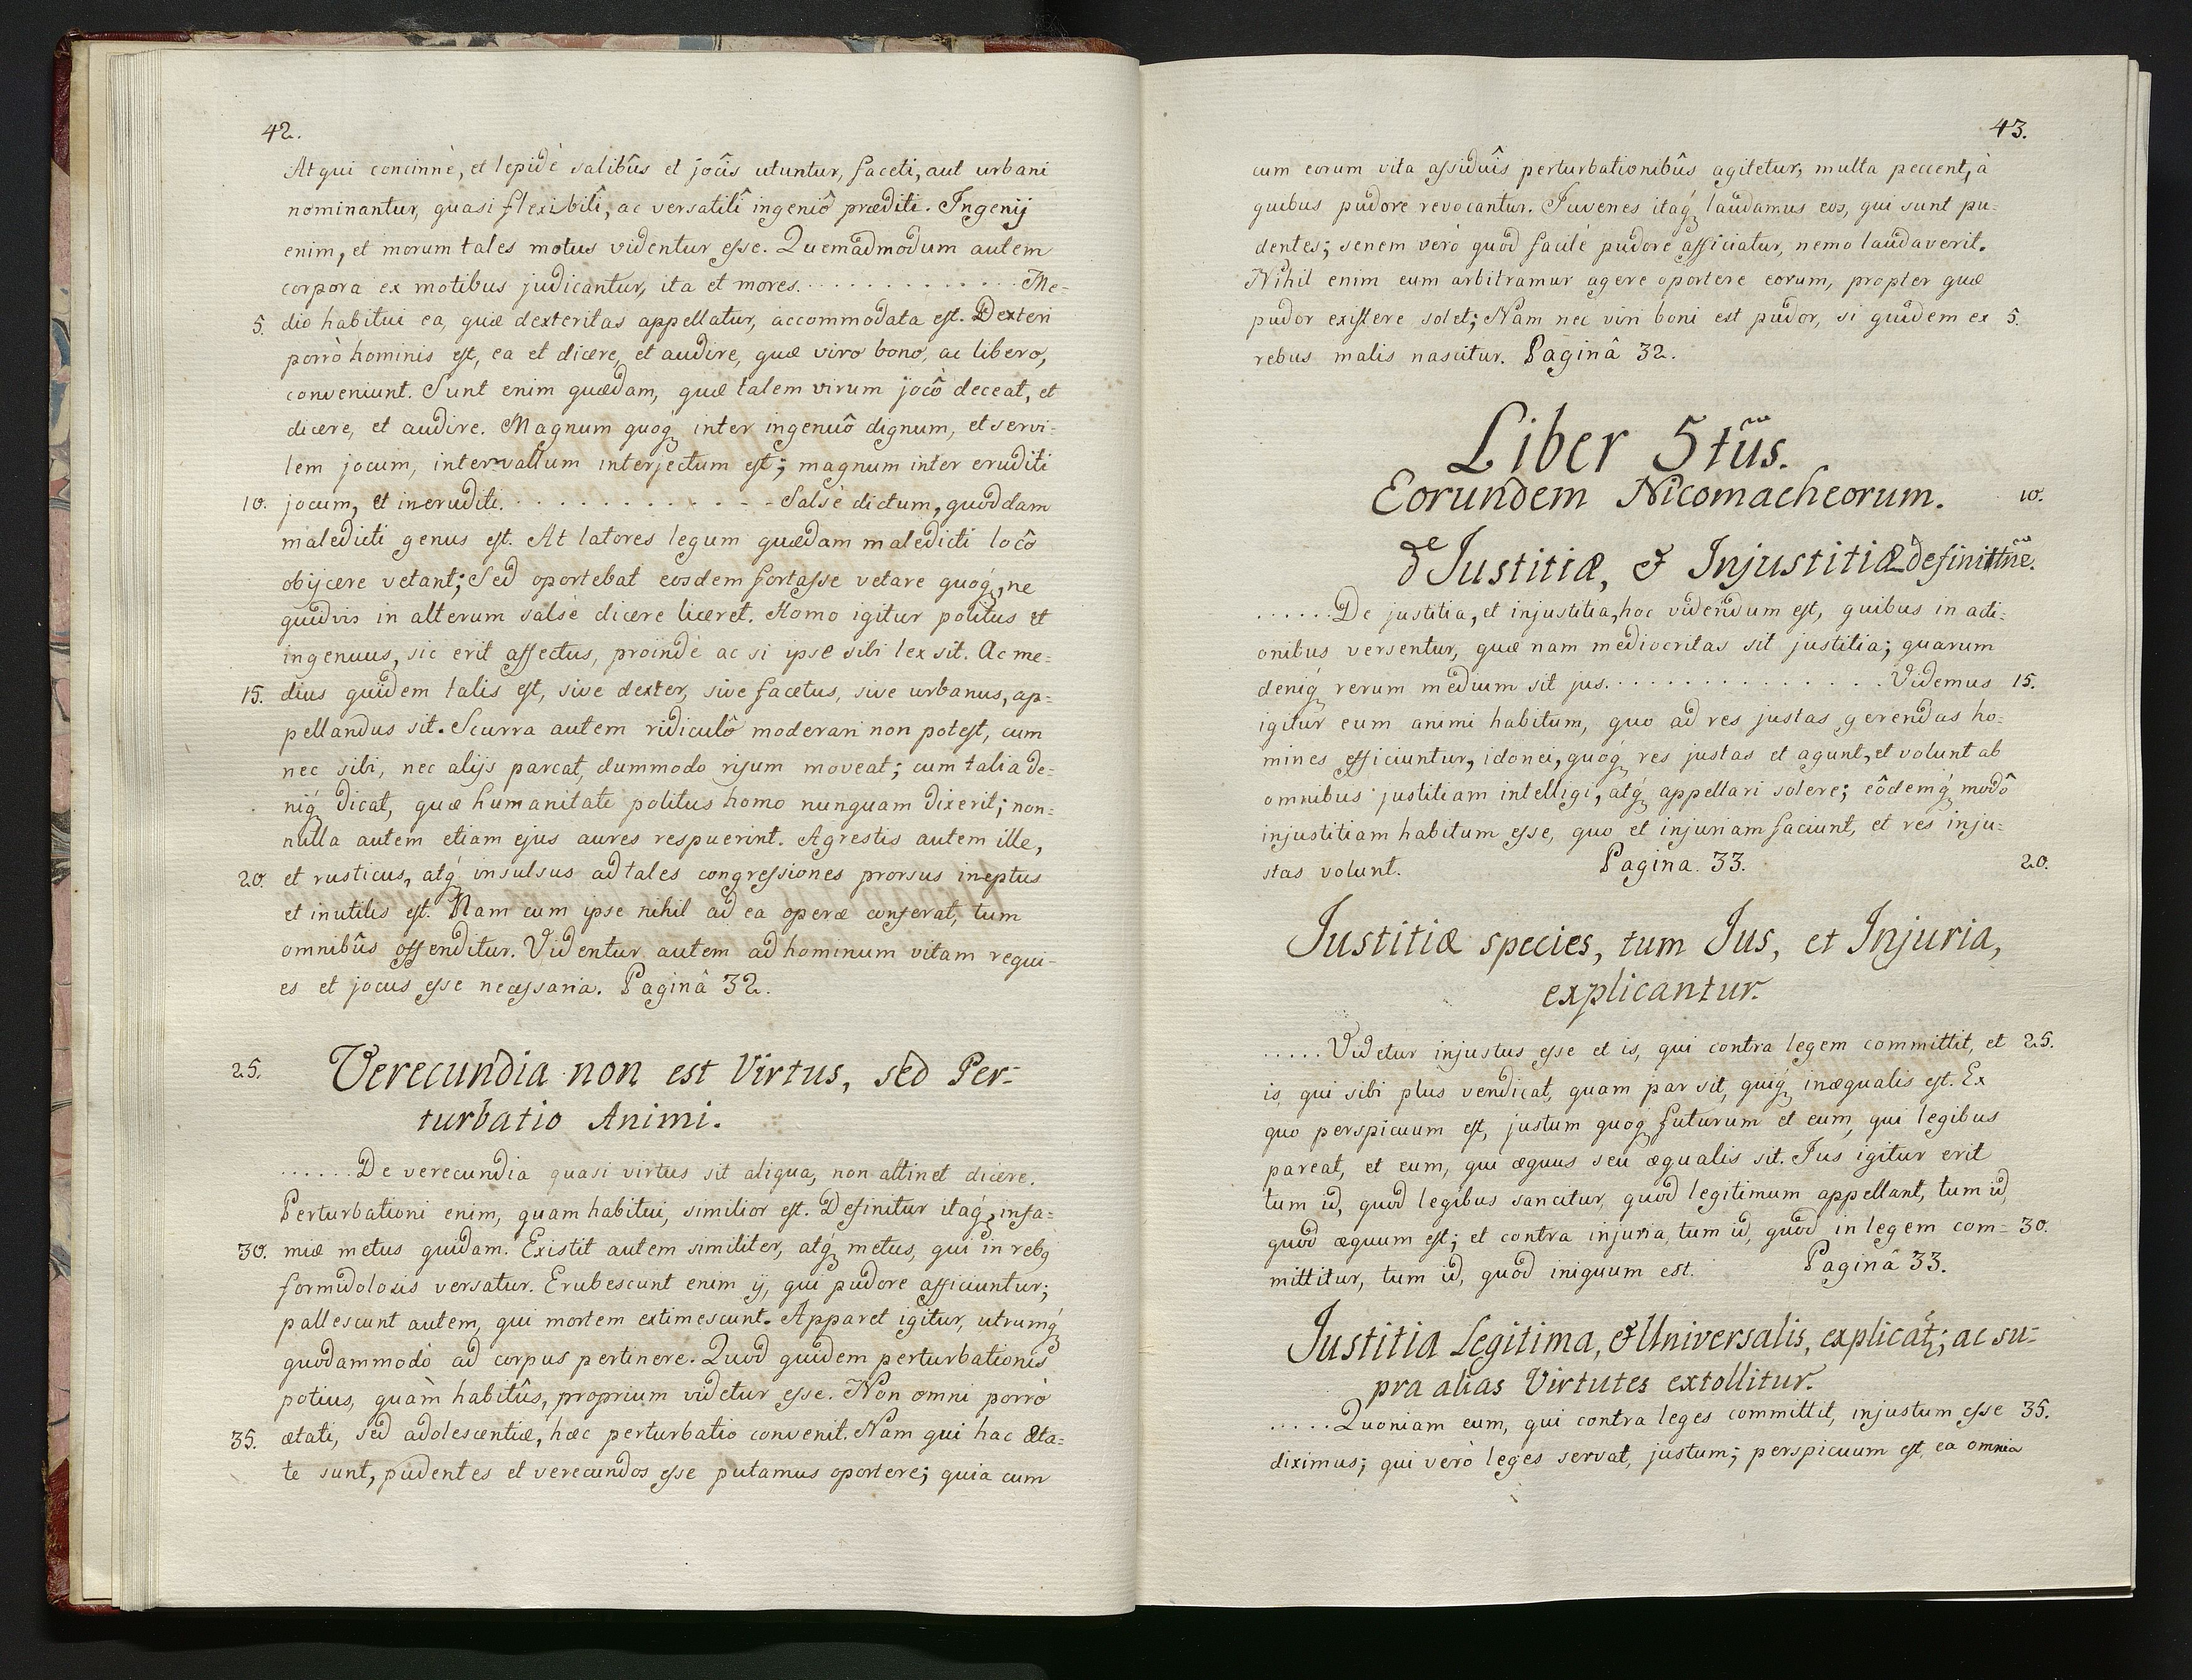 42.
At qui concinnè, et lepidè salibûs et jocîs utuntur, faceti, aut urbani
nominantur, quasi flexibilî, ac versatilî ingeniô præditi. Ingenij
enim, et morum tales motus videntur esse. Quemadmodum autem
corpora ex motibus judicantur, ita et mores. . . . . . . . . . . . . . Me-
5. dio habitui ea, quæ dexteritas appellatur, accommodata est. Dexteri
porrò hominis est, ea et dicere, et audire, quæ viro bono, ac libero,
conveniunt. Sunt enim quædam, quæ talem virum jocô deceat, et
dicere, et audire. Magnum quoq́ inter ingenuô dignum, et servi-
lem jocum, intervallum interjectum est; magnum inter eruditi
10. jocum, et ineruditi. . . . . . . . . . . . - - Salsè dictum, quoddam
maledicti genus est. At latores legum quædam maledicti locô
obijcere vetant; Sed oportebat eosdem fortasse vetare quoq́, ne
quidvis in alterum salsè dicere liceret. Homo igitur politus et
ingenuus, sic erit affectus, proindè ac si ipse sibi lex sit. Ac me-
15. dius quidem talis est, sive dexter, sive facetus, sive urbanus, ap-
pellandus sit. Scurra autem ridiculô moderari non potest, cum
nec sibi, nec alijs parcat, dummodo risum moveat; cum talia de-
niq́ dicat, quæ humanitate politus homo nunquam dixerit; non-
nulla autem etiam ejus aures respuerint. Agrestis autem ille,
20. et rusticus, atq́ insulsus ad tales congressiones prorsus ineptus
et inutilis est. Nam cum ipse nihil ad ea operæ conferat, tum
omnibûs offenditur. Videntur autem ad hominum vitam requi-
es et jocus esse necessaria. Paginâ 32.
25. Verecundia non est Virtus, sed Per-
turbatio Animi.
. . . . . . De verecundia quasi virtus sit aliqua, non attinet dicere.
Perturbationi enim, quam habitui, similior est. Definitur itaq́, infa-
30. miæ metus quidam. Existit autem similiter, atq́ metus, qui in rebq
formidolosis versatur. Erubescunt enim ij, qui pudore afficiuntur;
pallescunt autem, qui mortem extimescunt. Apparet igitur, utrumq́
quodammodò ad corpus pertinere. Quod quidem perturbationis
potius, quàm habitûs, proprium videtur esse. Non omni porrò
35. ætati, sed adolescentiæ, hæc perturbatio convenit. Nam qui hac æta-
te sunt, pudentes et verecundos esse putamus oportere; quia cum
43.
cum eorum vita assiduîs perturbationibûs agitetur, multa peccent, à
quibus pudore revocantur. Juvenes itaq́ laudamus eos, qui sunt pu-
dentes; senem verò quod facilè pudore afficiatur, nemo laudaverit.
Nihil enim eum arbitramur agere oportere eorum, propter quæ
pudor existere solet; Nam nec viri boni est pudor, si quidem ex 5.
rebus malis nascitur. Paginâ 32.
Liber 5tûs.
Eorundem Nicomacheorum. 10.
de Justitiæ, & Injustitiæ definittne.
. . . . . . De justitia, et injustitia, hoc videndum est, quibus in acti-
onibus versentur, quæ nam mediocritas sit justitia; quarum
deniq́ rerum medium sit jus. . . . . . . . . . . . . . . Videmus 15.
igitur eum animi habitum, quo ad res justas gerendas ho-
mines efficiuntur, idonei, quoq́ res justas et agunt, et volunt ab
omnibus justitiam intelligi, atq́ appellari solere; eôdemq́ modô
injustitiam habitum esse, quo et injuriam faciunt, et res inju-
stas volunt. Pagina. 33. 20.
Justitiæ species, tum Jus, et Injuria,
explicantur.
. . . . . Videtur injustus esse et is, qui contra legem committit, et 25.
is, qui sibi plus vendicat, quam par sit, quiq́ inæqualis est. Ex
quo perspicuum est, justum quoq́ futurum et eum, qui legibus
pareat, et eum, qui æquus seu æqualis sit. Jus igitur erit
tum id, quod legibus sancitur, quod legitimum appellant, tum id,
quod æquum est; et contra injuria, tum id, quod in legem com- 30.
mittitur, tum id, quod iniquum est. Paginâ 33.
Justitia Legitima, & Universalis, explicat̃; ac su-
pra alias Virtutes extollitur.
. . . . . Quoniam eum, qui contra leges committit, injustum esse 35.
diximus; qui verò leges servat, justum; perspicuum est, ea omnia